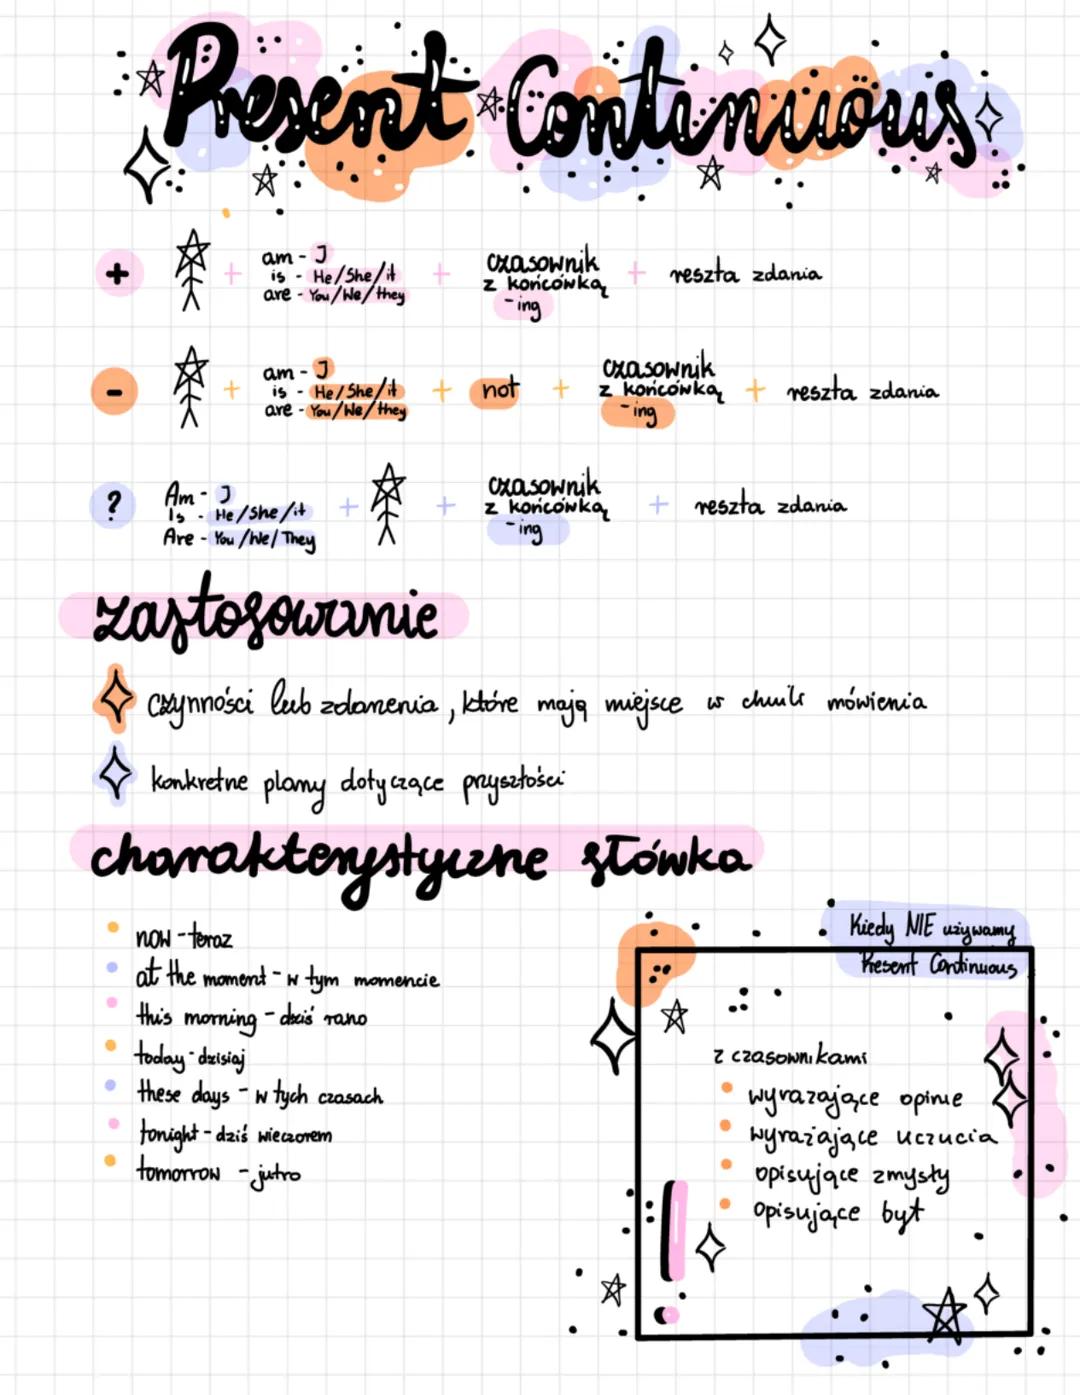 Present Continuous
+ + am - I + czasownik + reszta zdania
is - He/She/it z końcówką
are - You/We/they -ing
- + am - I + not + czasownik + reszta zdania
is - He/She/it z końcówką
are - You/We/they -ing
? Am - I + + czasownik + reszta zdania
Is - He/she/it z końcówką
Are - You/We/They -ing
zastosowanie
czynności lub zdarzenia, które mają miejsce w chwili mówienia
konkretne plany dotyczące przyszłości
charakterystyczne słówka
now - teraz
at the moment - w tym momencie
this morning - dziś rano
today - dzisiaj
these days - w tych czasach
tonight - dziś wieczorem
tomorrow - jutro
Kiedy NIE używamy
Present Continuous
z czasownikami
wyrażające opinie
wyrażające uczucia
opisujące zmysły
opisujące byt